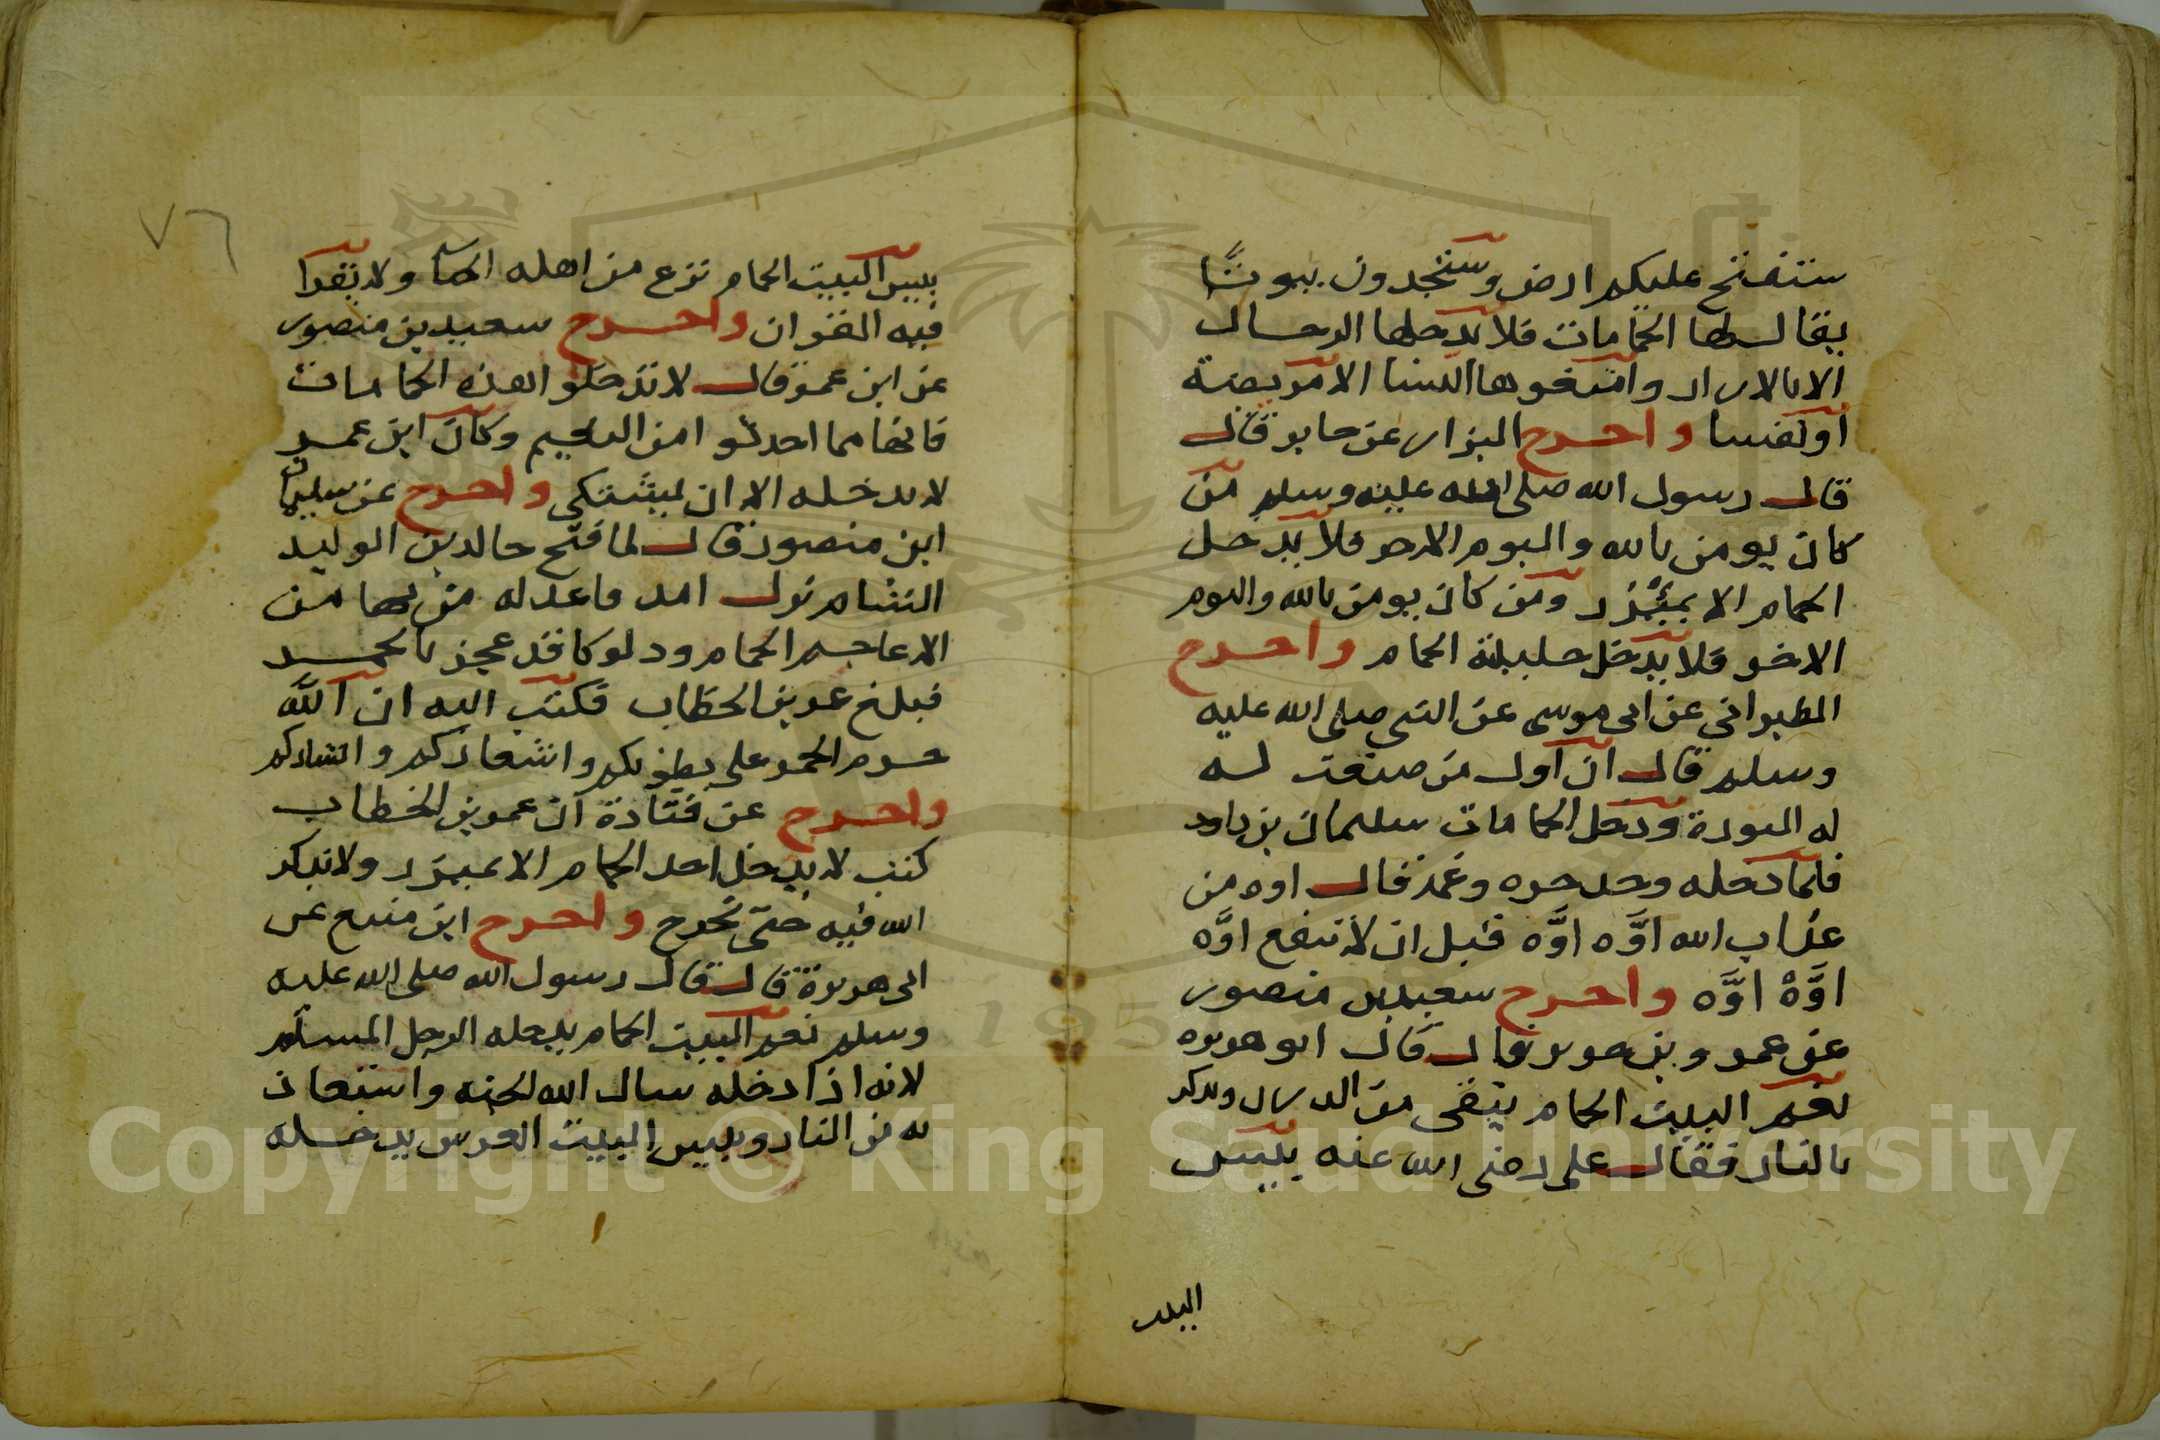 ستفتح عليكم ارض وستجدون بيوتًا
يقال لها الحمامات فلا يدخلها الرجال
الا بالازار وامنعوها النسا الا مريضة
او نفسا واخرج البزار عن جابر قال
قال رسول الله صلى الله عليه وسلم من
كان يومن بالله واليوم الاخر فلا يدخل
الحمام الا بمئزر ومن كان يومن بالله واليوم
الاخر فلا يدخل حليلته الحمام واخرج
الطبرانى عن ابى موسى عن النبى صلى الله عليه
وسلم قال ان اول من صنعت له
له النورة ودخل الحمامات سليمان بن داود
فلما دخله وجد حره وغمه فقال اوه من
عذاب الله اوَّه اوَّه قبل ان لا تنفع اوَّه
اوَّهْ اوَّه واخرج سعيد بن منصور
عن عمرو بن جرير قال قال ابو هريره
نعم البيت الحمام ينقى من الدرن ويذكر
بالنار فقال على رضى الله عنه بئيس
البيت
٧٦
بييس البيت الحمام تنزع من اهله الحيا ولا يقرا
فيه القران واخرج سعيد بن منصور
عن ابن عمر قال لا تدخلوا هذه الحمامات
فانها مما احدثوا من النعيم وكان ابن عمر
لا يدخله الا ان يشتكى واخرج عن سليمان
ابن منصور قال لما فتح خالد بن الوليد
الشام نزل امد فاعد له من بها من
الاعاجم الحمام ودلوكا قد عجن بالخمر
فبلغ عمر بن الخطاب فكتب اليه ان اللَّه
حرم الخمر على بطونكم واشعاركم وابشاركم
واخرج عن قتادة ان عمر بن الخطاب
كتب لا يدخل احد الحمام الا بميزر ولا يذكر
الله فيه حتى يخرج واخرج ابن منيع عن
ابى هريرة قال قال رسول الله صلى الله عليه
وسلم نعم البيت الحمام يدخله الرجل المسلم
لانه اذا دخله سال الله الجنه واستعاذ
به من النار وبييس البيت العرس يدخله
Copyright © King Saud University